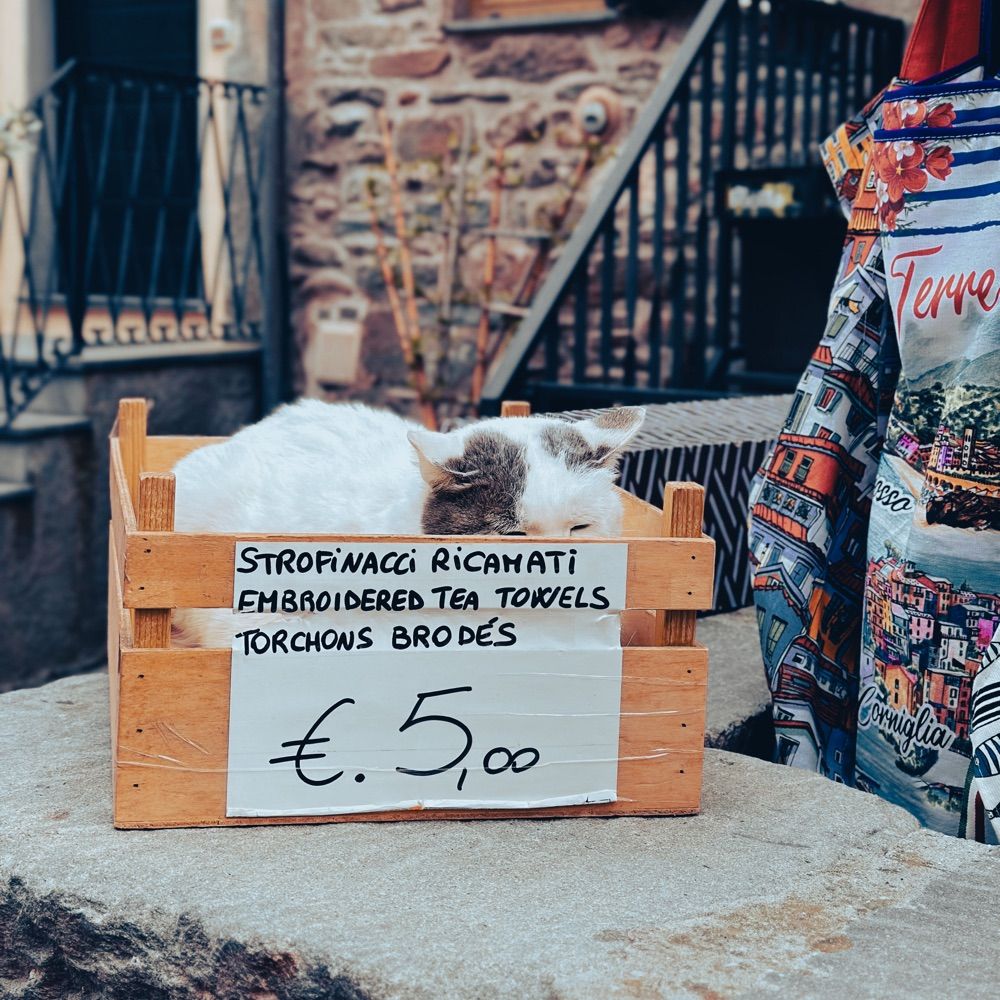 STROFINACCI RICAMATI
EMBROIDERED TEA TOWELS
TORCHONS BRODÉS
€. 5,00
Terre
sso
Corniglia